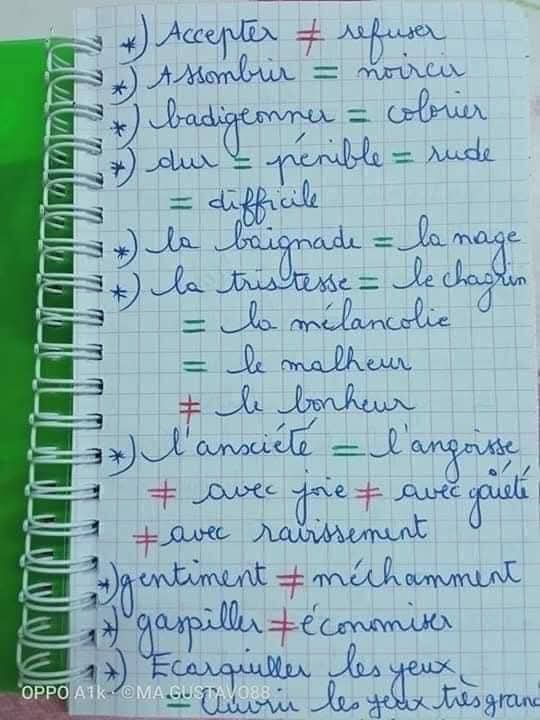 *) Accepter ≠ refuser
*) Assombrir = noircir
*) badigeonner = colorier
*) dur = pénible = rude
= difficile
*) la baignade = la nage
*) la tristesse = le chagrin
= la mélancolie
= le malheur
≠ le bonheur
*) l'anxiété = l'angoisse
≠ avec joie ≠ avec gaieté
≠ avec ravissement
*) gentiment ≠ méchamment
*) gaspiller ≠ économiser
*) Ecarquiller les yeux
= Ouvrir les yeux très grand
OPPO A1k · ©MA.GUSTAVO88